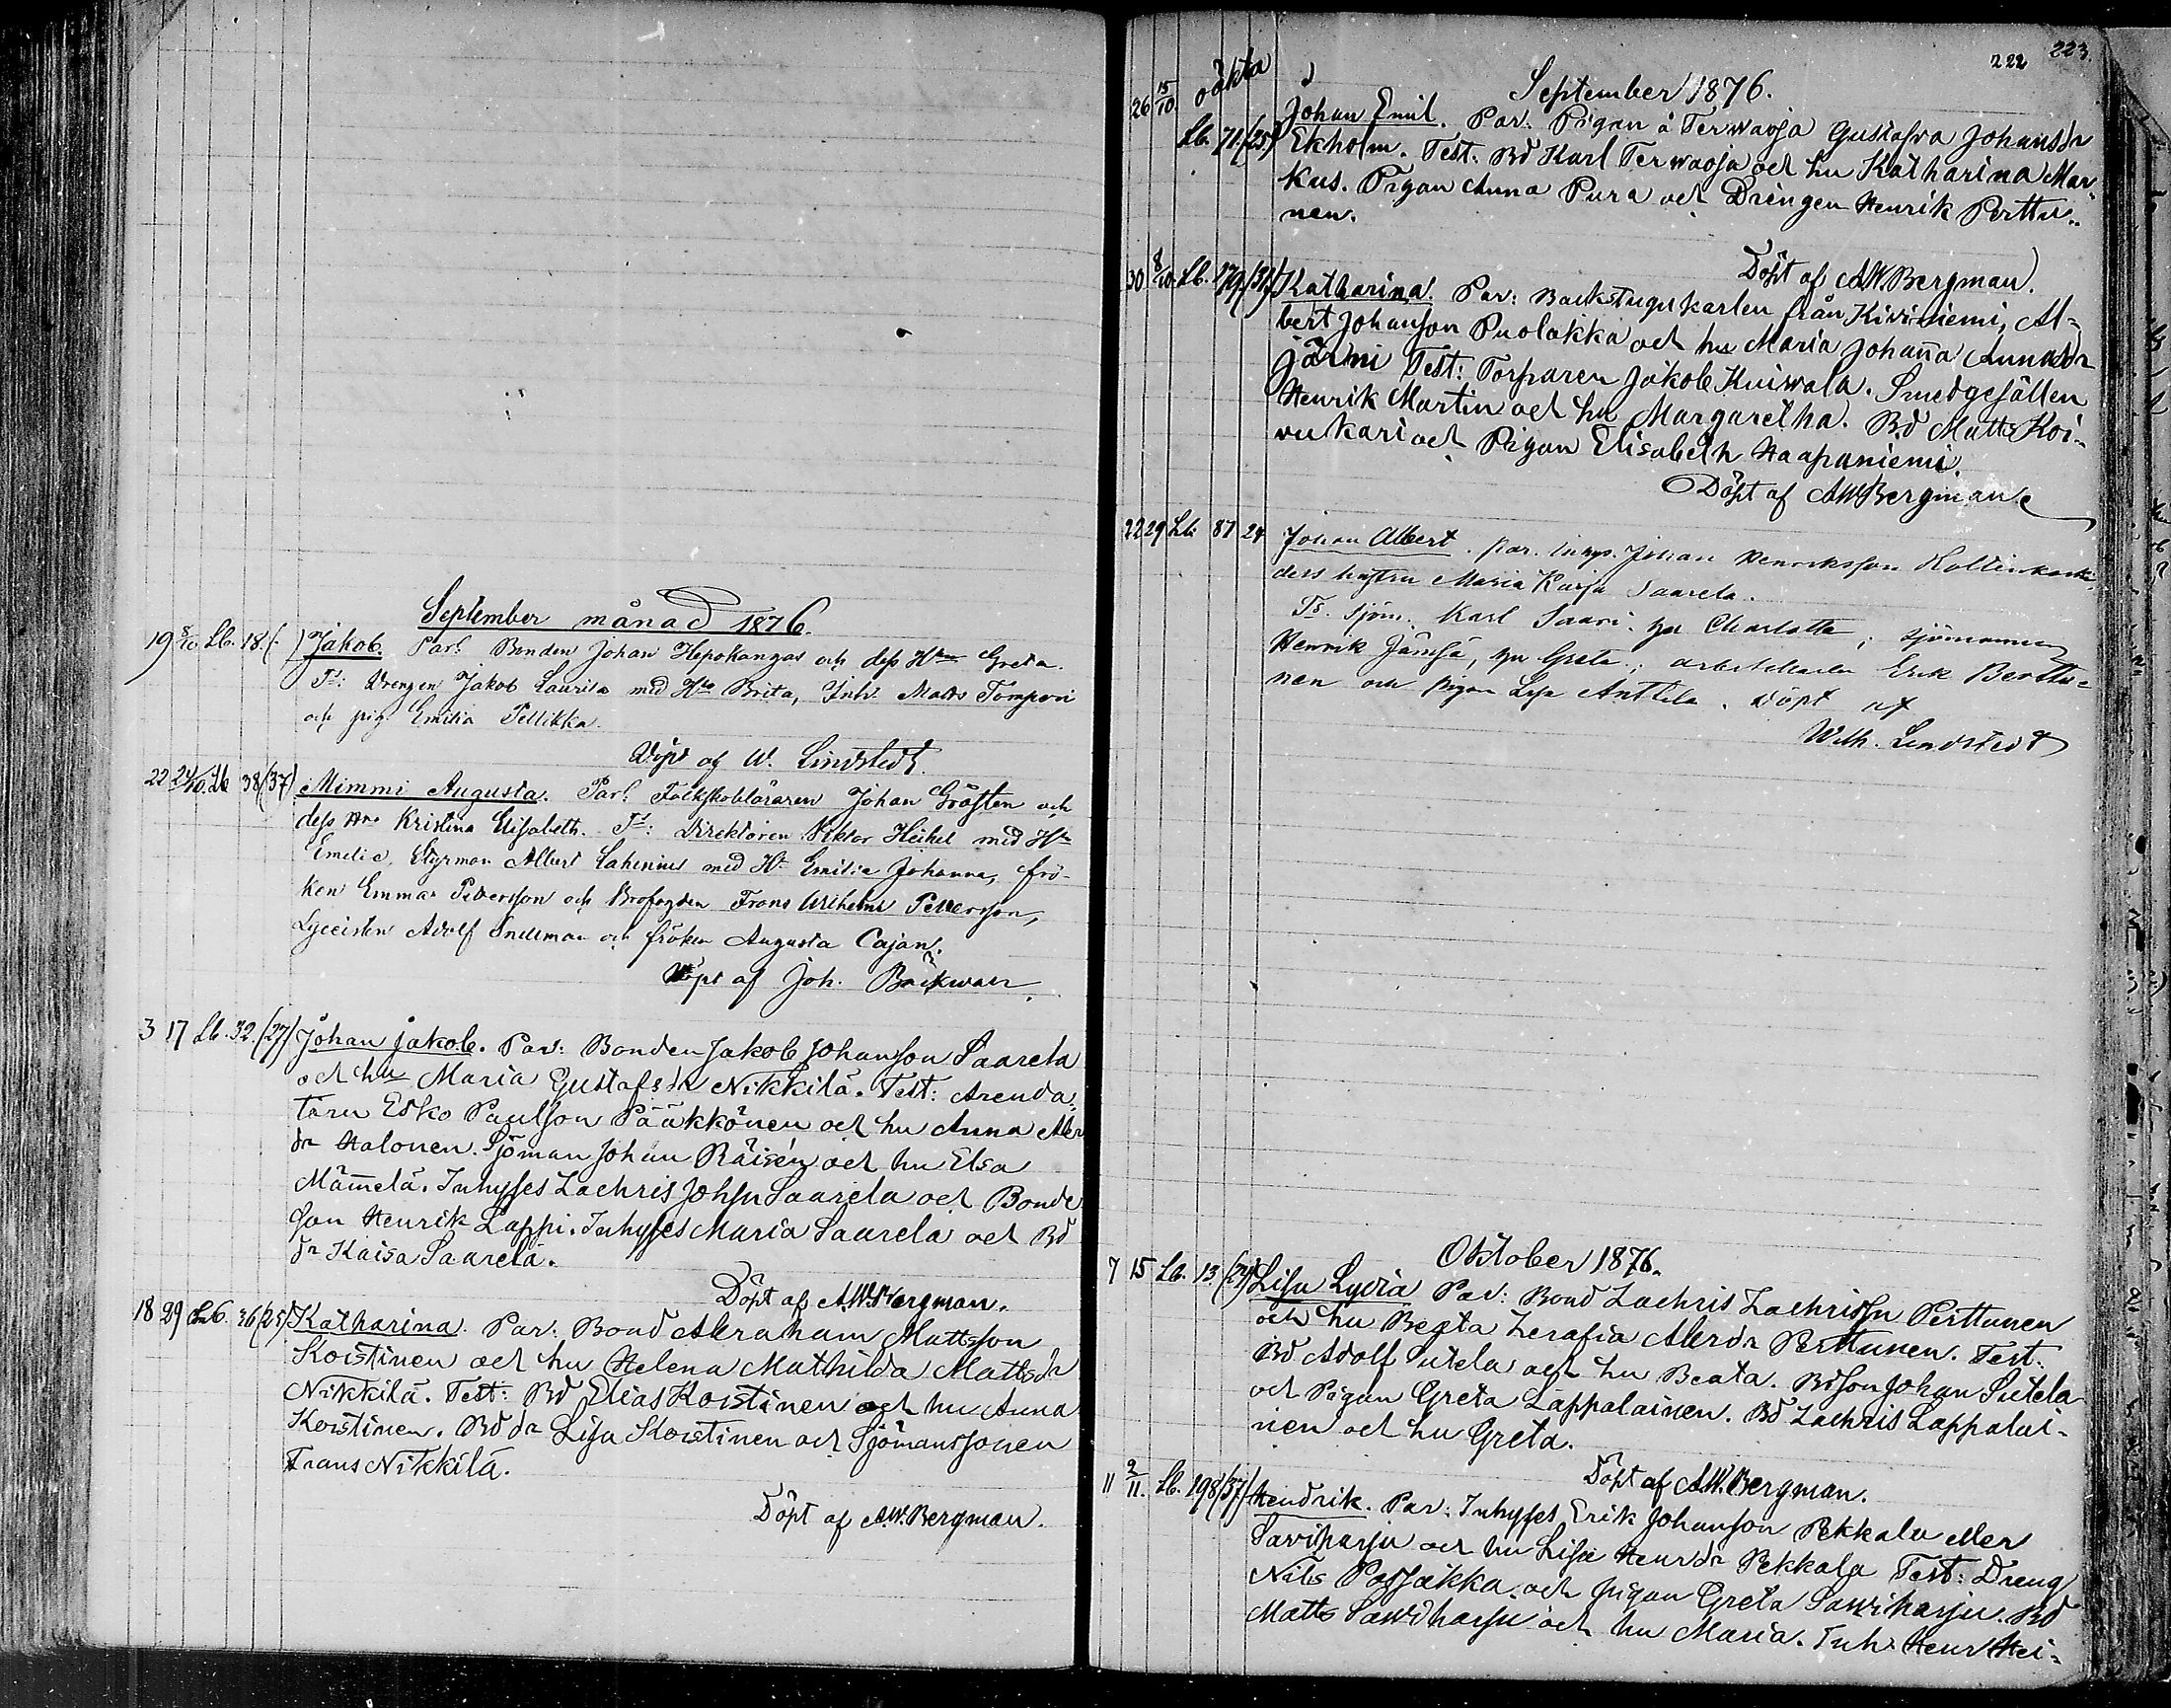 September månad 1876.
19 8/10 Lb. 18.(. ) Jakob. Par: Bonden Johan Hepokangas och dess Hu Greta.
Ts: Drengen Jakob Laurila med Hu Brita, Inh. Matts Tomperi
och pig. Emilia Pellikka.
Döpt af W. Lindstedt.
22 24/10. Lb 38 (37) Mimmi Augusta. Par: Folkskoleläraren Johan Gråsten och
dess Hu Kristina Elisabeth. Ts: Direktören Viktor Heikel med Hu
Emelie, Styrman Albert Lahenius med Hu Emilia Johanna, frö-
ken Emma Petersson och Brofogden Frans Wilhelm Pettersson,
Lyceisten Adolf Snellman och fröken Augusta Cajan.
Döpt af Joh. Bäckman.
3 17 Lb. 32. (27) Johan Jakob. Par: Bonden Jakob Johansson Saarela
och hu Maria Gustafsdr Nikkilä. Test: Arenda-
torn Esko Paulsson Pääkkönen och hu Anna Abr
dr Halonen. Sjöman Johan Räisén och hu Elsa
Mämmelä. Inhysses Zachris Johsn Saarela och Bonde
son Henrik Lappi. Inhysses Maria Saarela och Bd
dr Kaisa Saarela.
Döpt af A.W. Bergman.
18 29 Lb. 36 (25) Katharina. Par: Bond Abraham Mattsson
Koistinen och hu Helena Mathilda Mattsdr
Nikkilä. Test: Bd Elias Koistinen och hu Anna
Koistinen. Bd dr Lisa Koistinen och Sjömanssonen
Frans Nikkilä.
Döpt af A.W. Bergman.
222 223.
oäkta
September 1876.
26 15/10 Johan Emil. Par: Pigan å Terwaoja Gustafva Johansdr
Lb. 71. (25) Ekholm. Test: Bd Karl Terwaoja och hu Katharina Mar-
kus. Pigan Anna Pura och Drengen Henrik Perttu-
nen.
Döpt af A.W. Bergman.
30 8/10 Lb. 279. (31) Katharina. Par: Backstugukarlen från Kiviniemi, Al-
bert Johansson Puolakka och hu Maria Johanna Annasdr
Järvi Test: Torparen Jakob Kuiwala. Smedgesällen
Henrik Martin och hu Margaretha. Bd Matts Koi-
vukari och Pigan Elisabeth Haapaniemi.
Döpt af A.W. Bergman
22 29 Lb 87 24 Johan Albert. par. inhys. Johan Henriksson
dess hustru Maria Kaisa Saarela.
Ts. sjöm. Karl Saari, hu Charlotta; sjömannen
Henrik Jämsä, hu Greta; Erik Perttu-
nen och pigan Lisa Anttila. Döpt af
Wilh. Lindstedt
Oktober 1876.
7 15 Lb. 13. Lisa Lydia Par: Bond Zachris Zachrissn Perttunen
och hu Beata Serafia Abrdr Perttunen. Test:
Bd Adolf Sutela och hu Beata. Bdson Johan Sutela
och Pigan Greta Lappalainen. Bd Zachris Lappalai-
nen och hu Greta.
Döpt af A.W. Bergman.
11 2/11. Lb. 198 (37) Hendrik. Par: Inhysses Erik Johansson Pekkala eller
Saviharju och hu Lisa Henrdr Pekkala Test: Dreng
Nils Posjakka och pigan Greta Saviharju. Bd
Matts Saviharju och hu Maria. Inh. Henr Hei-